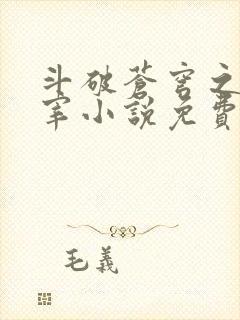 斗破蒼穹之
宰小說免費
毛義